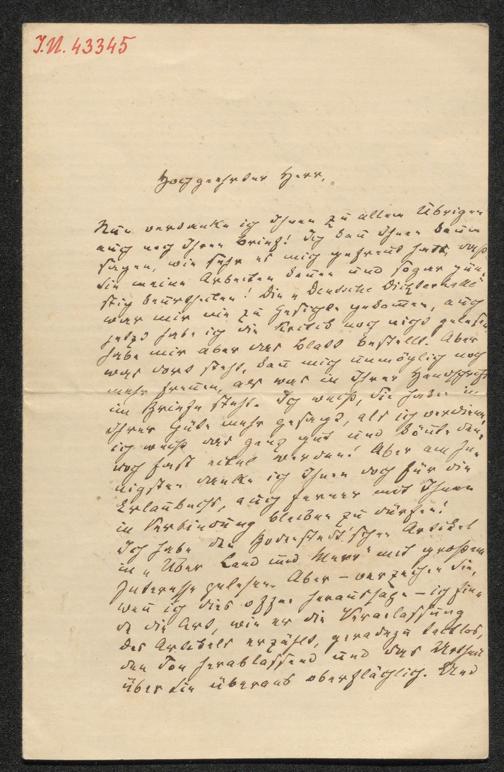 I.N. 43345
Hochgeehrter Herr,
Nun verdanke ich Ihnen zu allem Übrigen
auch noch Ihren Brief! Ich kan Ihnen kaum
sagen, wie sehr es mich gefreut hat, daß
Sie meine Arbeiten kennen und sogar gün-
stig beurtheilen! Die „Deutsche Dichterhalle“
war mir nie zu Gesichte gekommen, auch
jetzt habe ich die Kritik noch nicht gelesen
habe mir aber das Blatt bestellt. Aber
was dort steht, kan mich unmöglich noch
mehr freuen, als was in Ihrer Handschrift
im Briefe steht. Ich weiß, Sie haben in
Ihrer Güte mehr gesagt, als ich verdiene,
ich weiß das ganz gut und könte den-
noch fast eitel werden! Aber am In-
nigsten danke ich Ihnen doch für die
Erlaubniß, auch ferner mit Ihnen
in Verbindung bleiben zu dürfen!
Ich habe den Bodenstedt'schen Artikel
in „Über Land und Meer“ mit großem
Interesse gelesen. Aber – verzeihen Sie,
wen ich dies offen heraussage – ich fin-
de die Art, wie er die Veranlassung
des Artikels erzählt, geradezu taktlos,
den Ton herablassend und das Urtheil
über Sie überaus oberflächlich. Und